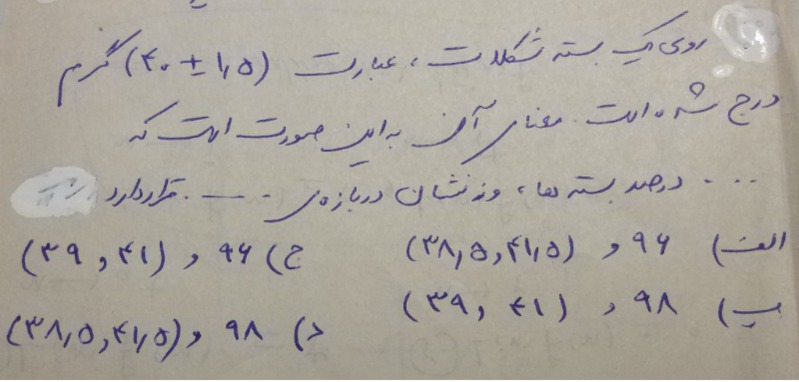 روی یک بسته شکلات، عبارت (۴۰ ± ۱٫۵) گرم
درج شده است. معنای آن به این صورت است که
.... درصد بسته ها، وزنشان در بازه‌ی ..... قرار دارد
الف) ۹۶ و (۳۸٫۵ , ۴۱٫۵) ج) ۹۶ و (۳۹ , ۴۱)
ب) ۹۸ و (۳۹ , ۴۱)
د) ۹۸ و (۳۸٫۵ , ۴۱٫۵)